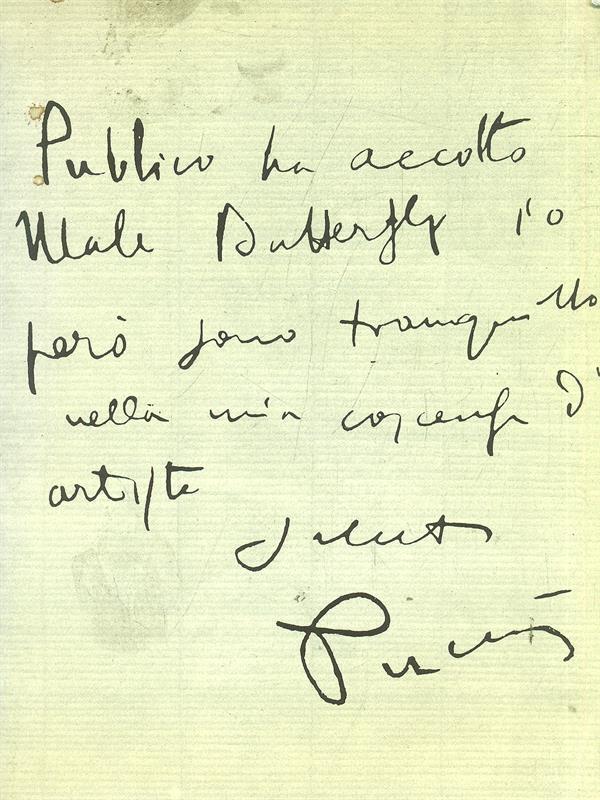 Publico ha accolto
Male Butterfly io
però sono tranquillo
nella mia coscenza d'
artista
Saluti
Puccini